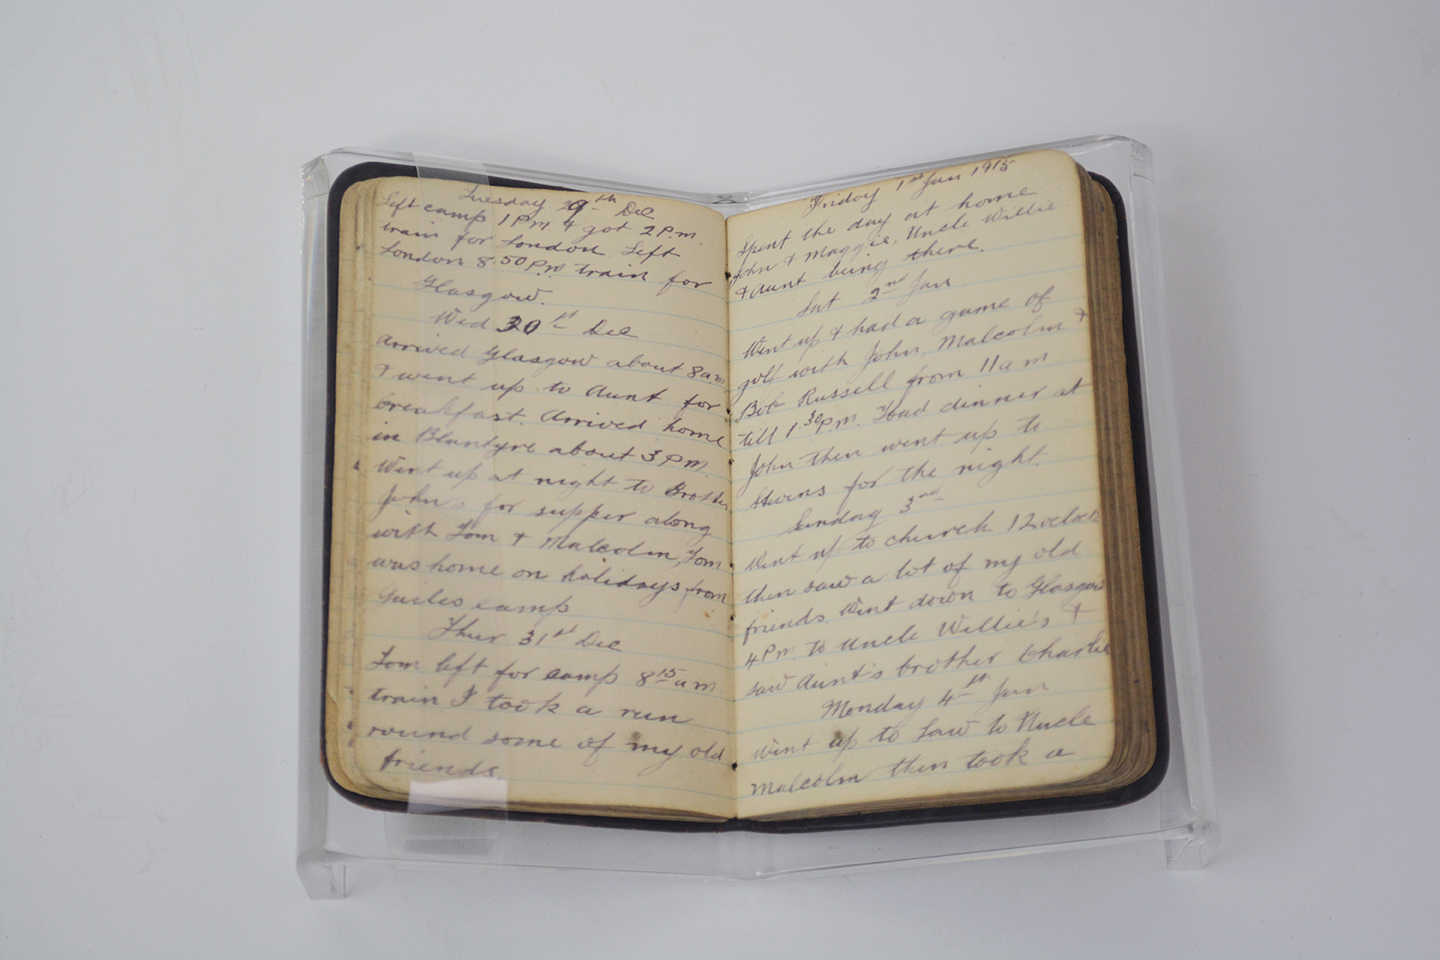 Tuesday 29th Dec
Left camp 1 P.m. & got 2 P.m.
train for London. Left
London 8.50 P.m train for
Glasgow.
Wed 30th Dec
Arrived Glasgow about 8 a.m.
& went up to Aunt for
breakfast. Arrived home
in Blantyre about 3 P.M.
Went up at night to Brother
John's for supper along
with Tom & Malcolm, Tom
was home on holidays from
camp
Thur 31st Dec
Tom left for camp 8 15 a m
train I took a run
round some of my old
friends
Friday 1st Jan 1915
Spent the day at home
John & Maggie, Uncle Willie
& Aunt being there.
Sat 2nd Jan
Went up & had a game of
golf with John, Malcolm &
Bob Russell from 11 a m
till 1 30 P.m. Had dinner at
John then went up to
for the night.
Sunday 3rd
Went up to church 12 oclock
then saw a lot of my old
friends. Went down to Glasgow
4 P m to Uncle Willie's &
saw Aunt's brother Charlie
Monday 4th Jan
Went up to Law to Uncle
Malcolm then took a